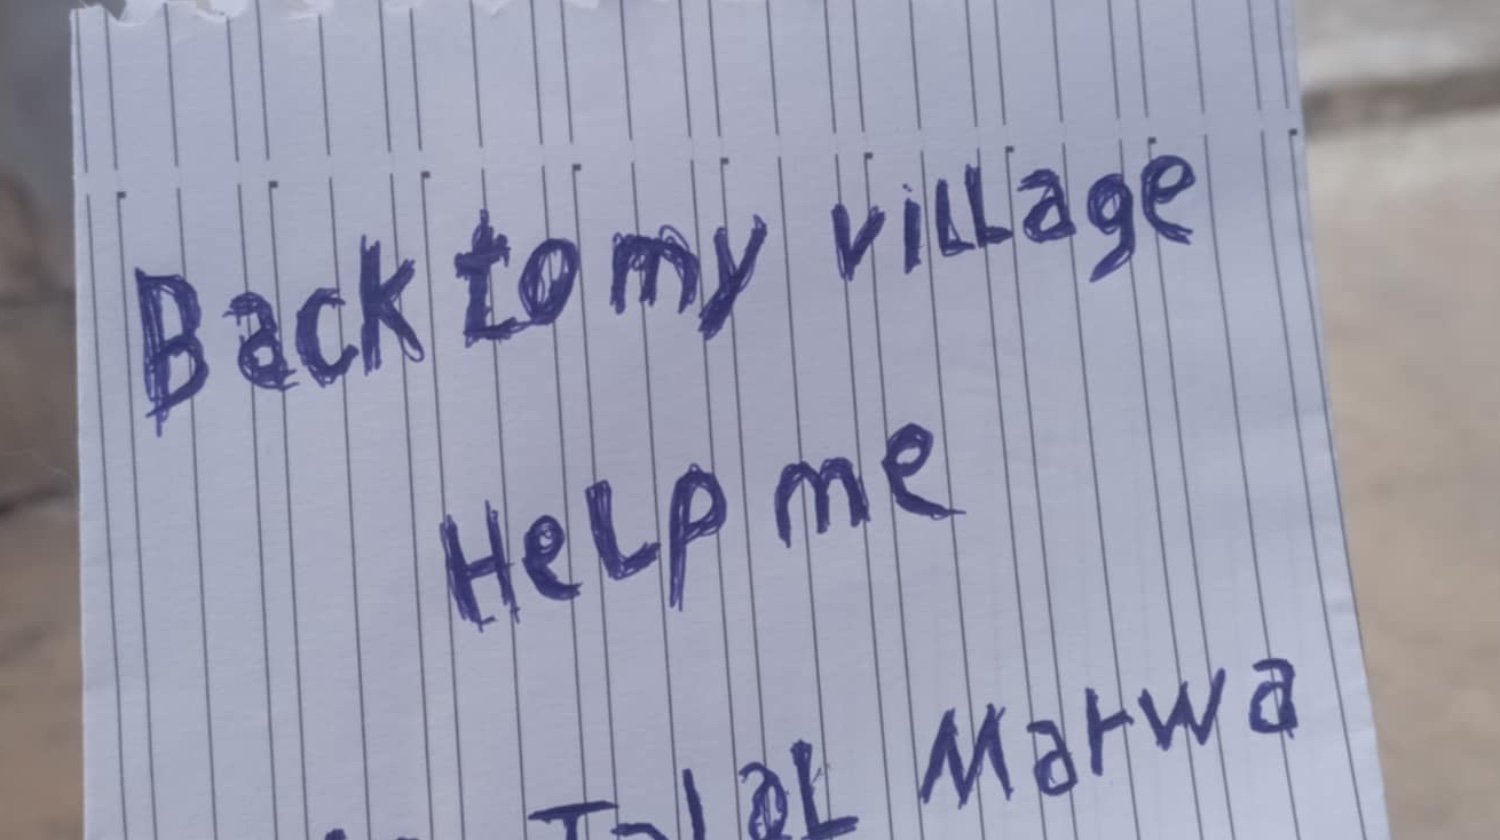 Back to my village
Help me
Talal Marwa